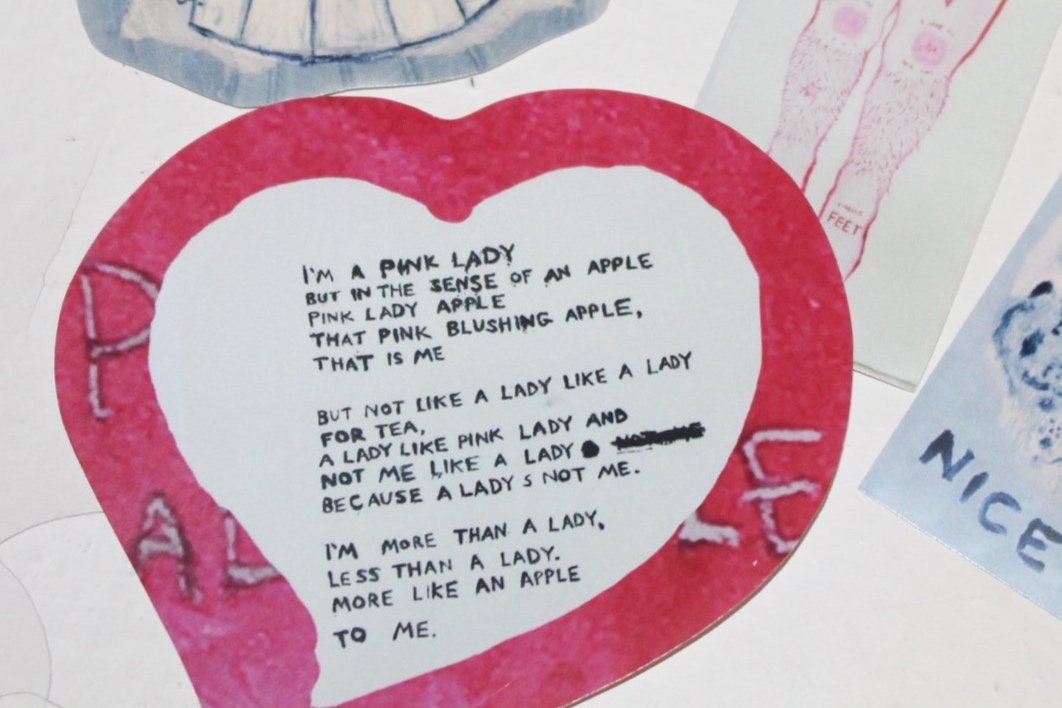 I'M A PINK LADY
BUT IN THE SENSE OF AN APPLE
PINK LADY APPLE
THAT PINK BLUSHING APPLE,
THAT IS ME
BUT NOT LIKE A LADY LIKE A LADY
FOR TEA,
A LADY LIKE PINK LADY AND
NOT ME LIKE A LADY
BECAUSE A LADY S NOT ME.
I'M MORE THAN A LADY,
LESS THAN A LADY.
MORE LIKE AN APPLE
TO ME.
FEET
NICE